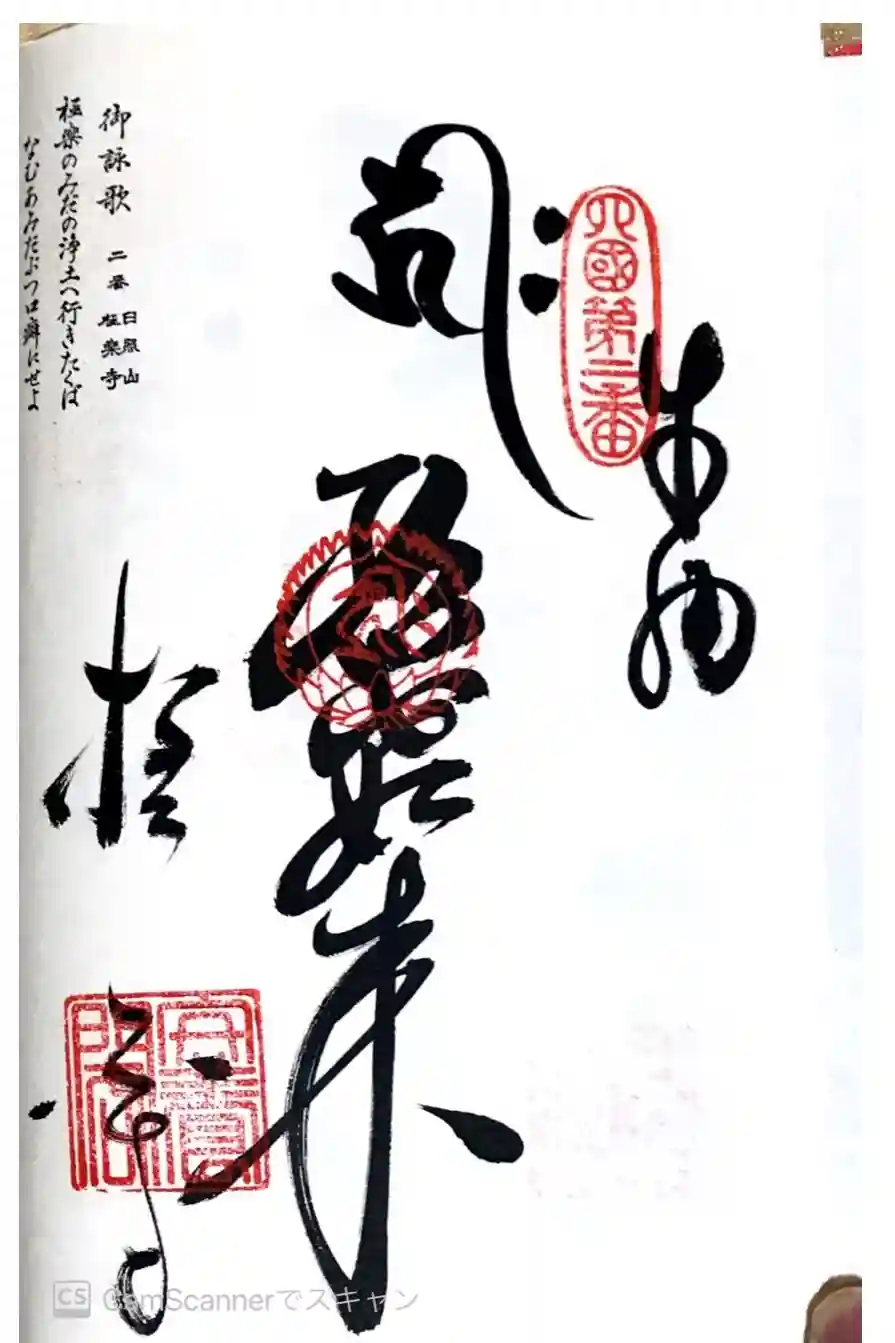 奉納
四國第二番
如来
御詠歌 二番 日照山 極楽寺
極楽のみだの浄土へ行きたくば
なむあみだぶつ口癖にせよ
CS CamScannerでスキャン